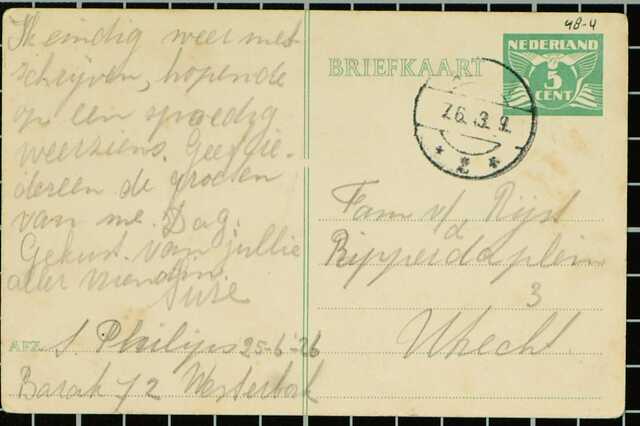 Ik eindig weer met
schrijven, hopende
op een spoedig
weerziens. Geef ie-
dereen de groeten
van me. Dag.
Gekust van jullie
aller vriendin
Susie
AFZ. S Philips 25-6-26
Barak 72 Westerbork
4B-4
BRIEFKAART
NEDERLAND
5
CENT
26.3.9.
* 2 *
Fam v/d Rijst
Ripperdaplein
3
Utrecht